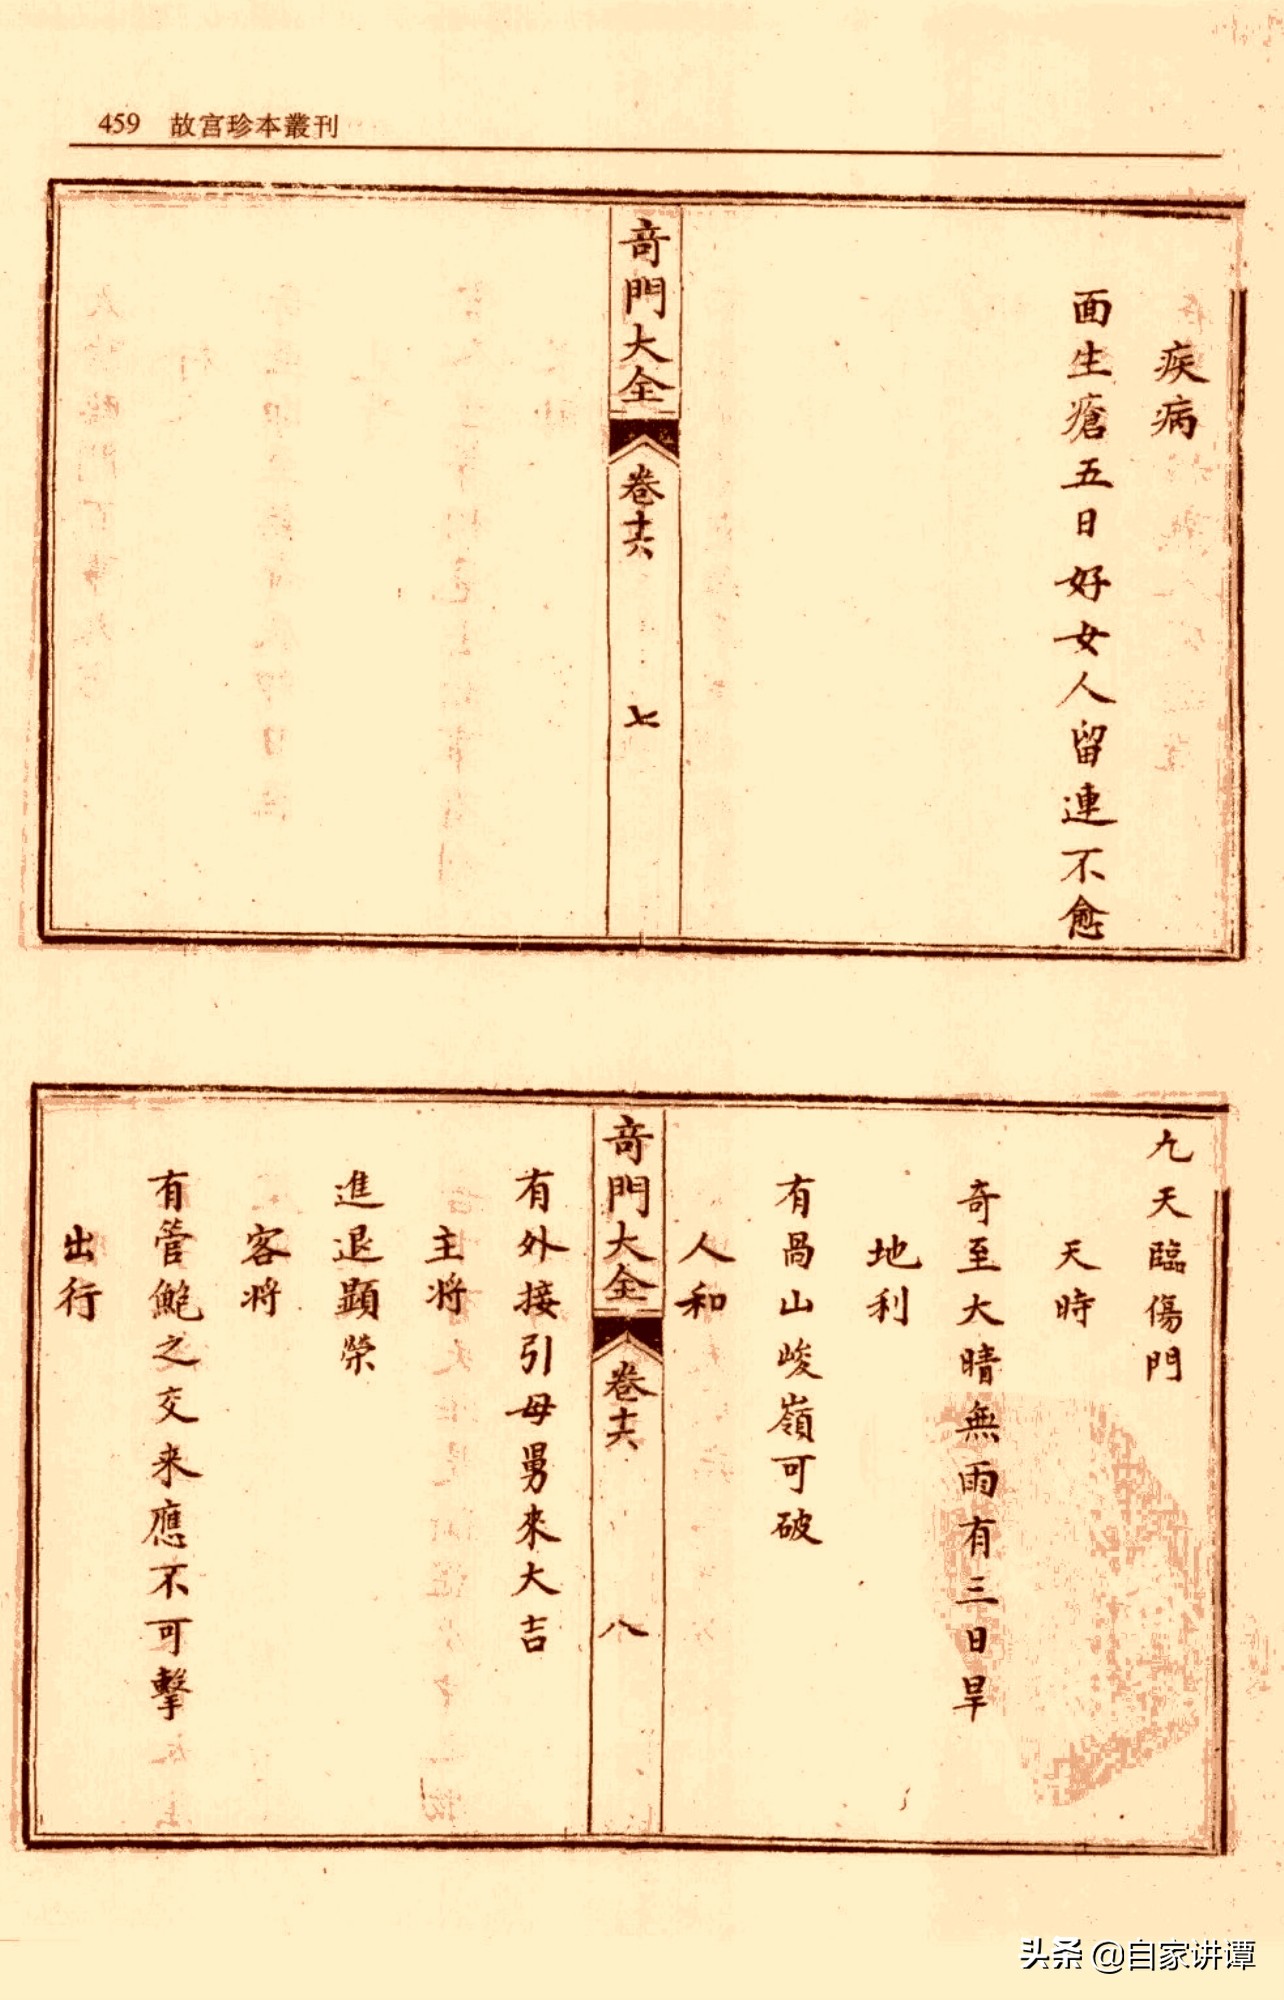 459 故宮珍本叢刊
疾病
面生瘡五日好女人留連不愈
奇門大全 卷十六 七
九天臨傷門
天時
奇至大晴無雨有三日旱
地利
有咼山峻嶺可破
人和
奇門大全 卷十六 八
有外接引母舅來大吉
主將
進退顯榮
客將
有管鮑之交来應不可擊
出行
头条 @自家讲谭